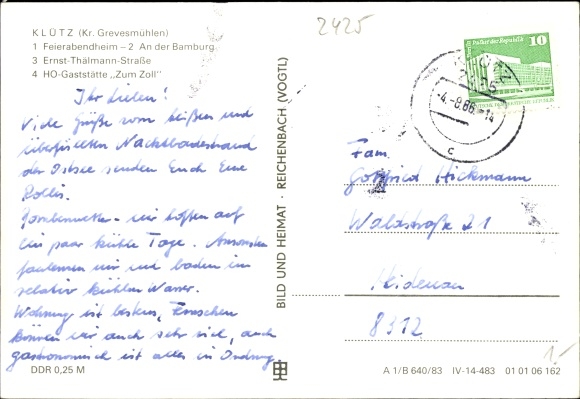 2425
KLÜTZ (Kr. Grevesmühlen)
1 Feierabendheim – 2 An der Bamburg
3 Ernst-Thälmann-Straße
4 HO-Gaststätte „Zum Zoll"
Ihr Lieben!
Viele Grüße vom heißen und
überfüllten Nacktbadestrand
der Ostsee senden Euch Eure
Rollis.
wir hoffen auf
ein paar kühle Tage. Ansonsten
faulenzen wir und baden im
relativ kühlen Wasser.
Wohnung ist bestens, Fernsehen
können wir auch sehr viel, auch
gastronomisch ist alles in Ordnung
DDR 0,25 M
BILD UND HEIMAT · REICHENBACH (VOGTL)
Palast der Republik
10
KLÜTZ
2425
-4.-8.86.-14
c
Fam.
Gottfried Hickmann
Waldstraße 21
Heidenau
8312
1,-
A 1/B 640/83 IV-14-483 01 01 06 162